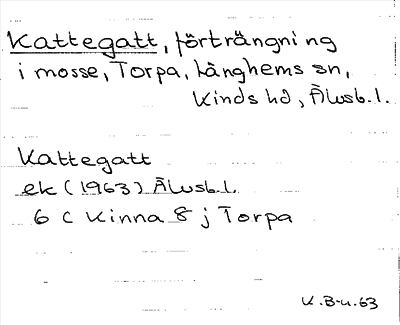 Kattegatt, förträngning
i mosse, Torpa, Långhems sn,
Kinds hd, Älvsb. l.
Kattegatt
ek (1963) Älvsb. l.
6 C Kinna 8 j Torpa
K. B-u. 63